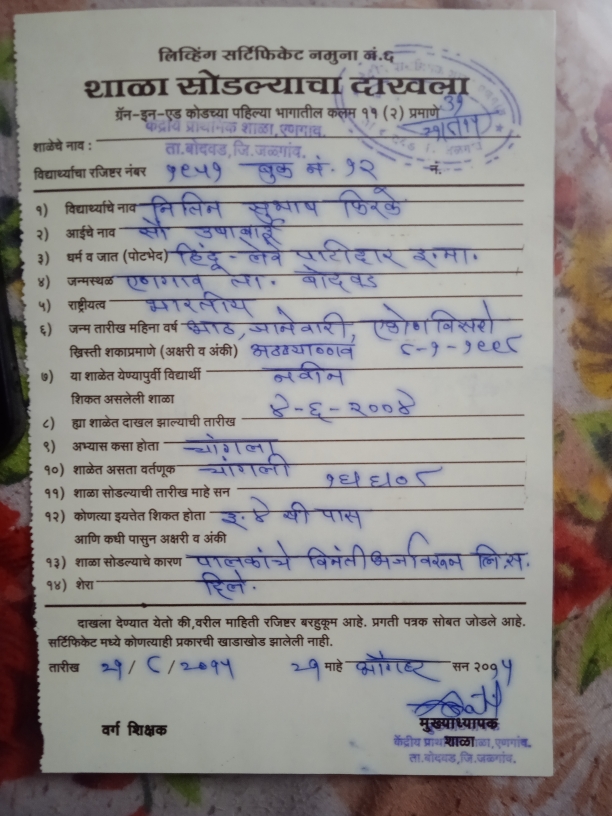 लिव्हिंग सर्टिफिकेट नमुना नं.६
शाळा सोडल्याचा दाखला
ग्रॅन-इन-एड कोडच्या पहिल्या भागातील कलम ११ (२) प्रमाणे
३१
२१/८/१५
केंद्रीय प्राथमिक शाळा, एणगांव.
शाळेचे नाव :
ता.बोदवड,जि.जळगांव.
विद्यार्थ्याचा रजिष्टर नंबर १९५१ बुक नं. १२ नं.
१) विद्यार्थ्याचे नाव नितिन सुभाष फिरके
२) आईचे नाव सौ उषाबाई
३) धर्म व जात (पोटभेद) हिंदू - लेवे पाटीदार इ.मा.
४) जन्मस्थळ एणगाव ता. बोदवड
५) राष्ट्रीयत्व भारतीय
६) जन्म तारीख महिना वर्ष आठ, जानेवारी, एकोणविसशे
ख्रिस्ती शकाप्रमाणे (अक्षरी व अंकी) अठठ्याण्णव ८-१-१९९८
७) या शाळेत येण्यापुर्वी विद्यार्थी नवीन
शिकत असलेली शाळा
८) ह्या शाळेत दाखल झाल्याची तारीख ४-६-२००४
९) अभ्यास कसा होता चांगला
१०) शाळेत असता वर्तणूक चांगली
११) शाळा सोडल्याची तारीख माहे सन
१२) कोणत्या इयत्तेत शिकत होता इ. ४ थी पास
आणि कधी पासुन अक्षरी व अंकी
१३) शाळा सोडल्याचे कारण पालकांचे विनंती अर्जावरून लि.स.
१४) शेरा दिले.
दाखला देण्यात येतो की,वरील माहिती रजिष्टर बरहुकूम आहे. प्रगती पत्रक सोबत जोडले आहे.
सर्टिफिकेट मध्ये कोणत्याही प्रकारची खाडाखोड झालेली नाही.
तारीख २१/८/२०१५ २१ माहे ऑगष्ट सन २०१५
वर्ग शिक्षक मुख्याध्यापक
केंद्रीय प्राथमिक शाळा,एणगांव.
शाळा
ता.बोदवड,जि.जळगांव.